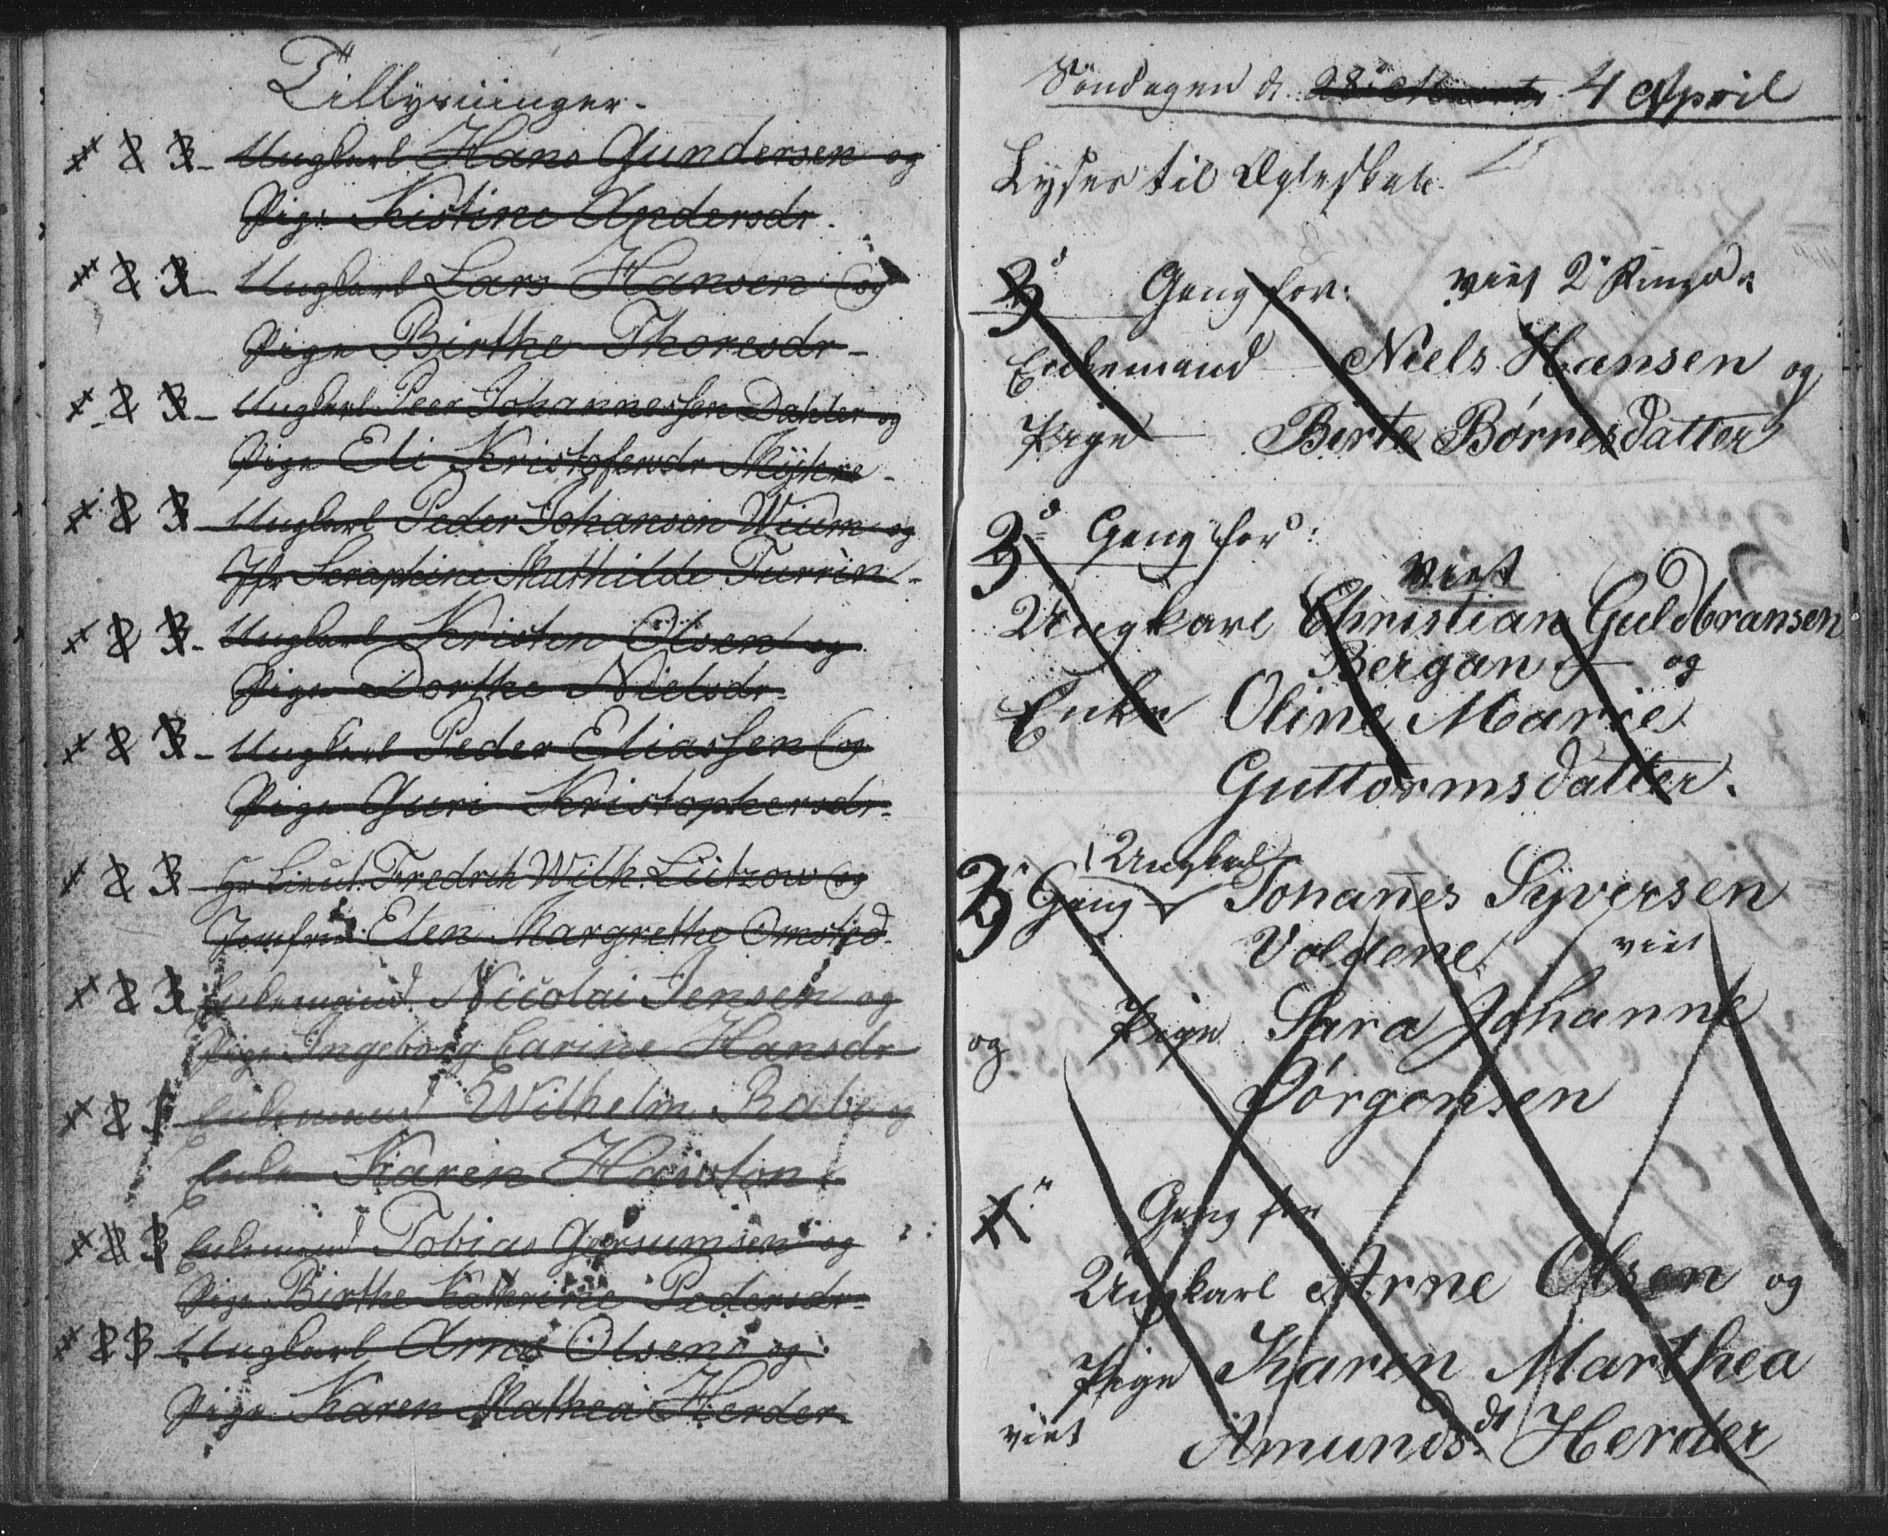 Tillysninger.
Ungkarl Hans Gundersen og
Pige Kistine Andersdr.
Ungkarl Lars Hansen og
Pige Birthe Thoresdr
Ungkarl Peer Johannessen Dahler og
Pige Eli Kristofersdr Myhre
Ungkarl Peder Johansen Wium og
Jfr Seraphine Mathilde Turrin
Ungkarl Kristen Olsen og
Pige Dorthe Nielsdr
Ungkarl Peder Eliassen og
Pige Guri Kristophersdr
Hr Lieut. Fredrik Wilh. Lützow og
Jomfru Elen Margrethe Omsted
Enkemand Nicolai Jensen og
Pige Ingeborg Carine Hansdr
Enkemand Wilhelm Rabe og
Enke Karen Hawton
Enkemand Tobias Gjersumsen og
Pige Birthe Kathrine Pedersdr
Ungkarl Arne Olsen og
Pige Karen Mathea Herder
Søndagen d. 28 Marts 4 April
Lyses til Ægteskab
3 Gang for: viet 2
Enkemand Niels Hansen og
Pige Birte Børresdatter
3 Gang for:
viet
Ungkarl Christian Guldbransen
Bergan og
Enke Oline Marie
Guttormsdatter.
3 Gang Ungkarl Johanes Syversen
Voldene viet
og Pige Sara Johanne
Jørgensen
Gang for
Ungkarl Arne Olsen og
Pige Karen Marthea
viet Amunds.dt Herder